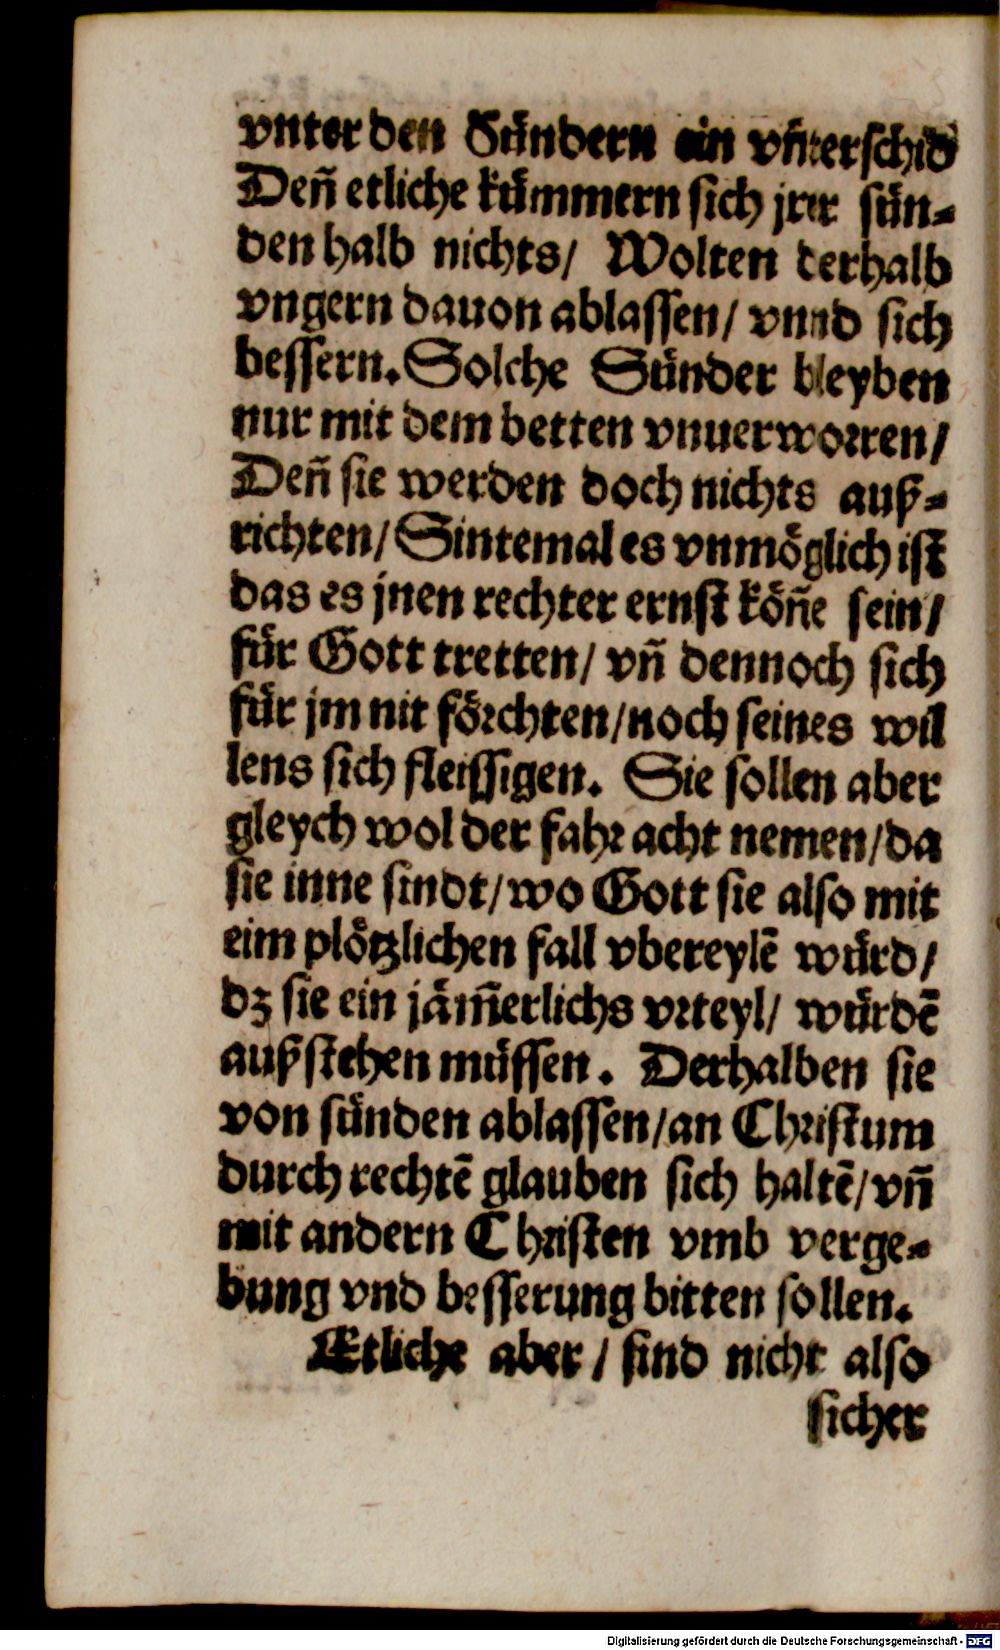 vnter den Sündern ein vnterschid
Deñ etliche kümmern sich jrer sün⸗
den halb nichts/ Wolten derhalb
vngern dauon ablassen/ vnnd sich
bessern. Solche Sünder bleyben
nur mit dem betten vnuerworren/
Deñ sie werden doch nichts auß⸗
richten/ Sintemal es vnmöglich ist
das es jnen rechter ernst köñe sein/
für Gott tretten/ vñ dennoch sich
für jm nit förchten/ noch seines wil
lens sich fleissigen. Sie sollen aber
gleych wol der fahr acht nemen/ da
sie inne sindt/ wo Gott sie also mit
eim plötzlichen fall vbereylē würd/
dz sie ein jäm̃erlichs vrteyl/ würdē
außstehen müssen. Derhalben sie
von sünden ablassen/ an Christum
durch rechtē glauben sich haltē/ vñ
mit andern Christen vmb verge⸗
bung vnd besserung bitten sollen.
Etliche aber/ sind nicht also
sicher
Digitalisierung gefördert durch die Deutsche Forschungsgemeinschaft - DFG